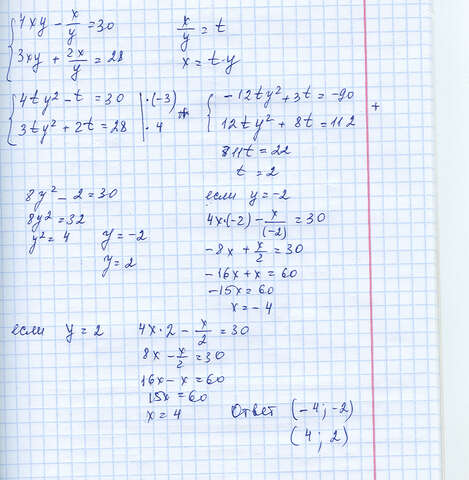 4xy - x/y = 30
3xy + 2x/y = 28
x/y = t
x = t·y
4ty² - t = 30 | ·(-3)
3ty² + 2t = 28 | ·4
+
-12ty² + 3t = -90
12ty² + 8t = 112
+
11t = 22
t = 2
8y² - 2 = 30
8y² = 32
y² = 4
y = -2
y = 2
если y = -2
4x·(-2) - x/(-2) = 30
-8x + x/2 = 30
-16x + x = 60
-15x = 60
x = -4
если y = 2
4x·2 - x/2 = 30
8x - x/2 = 30
16x - x = 60
15x = 60
x = 4
Ответ (-4; -2)
(4; 2)